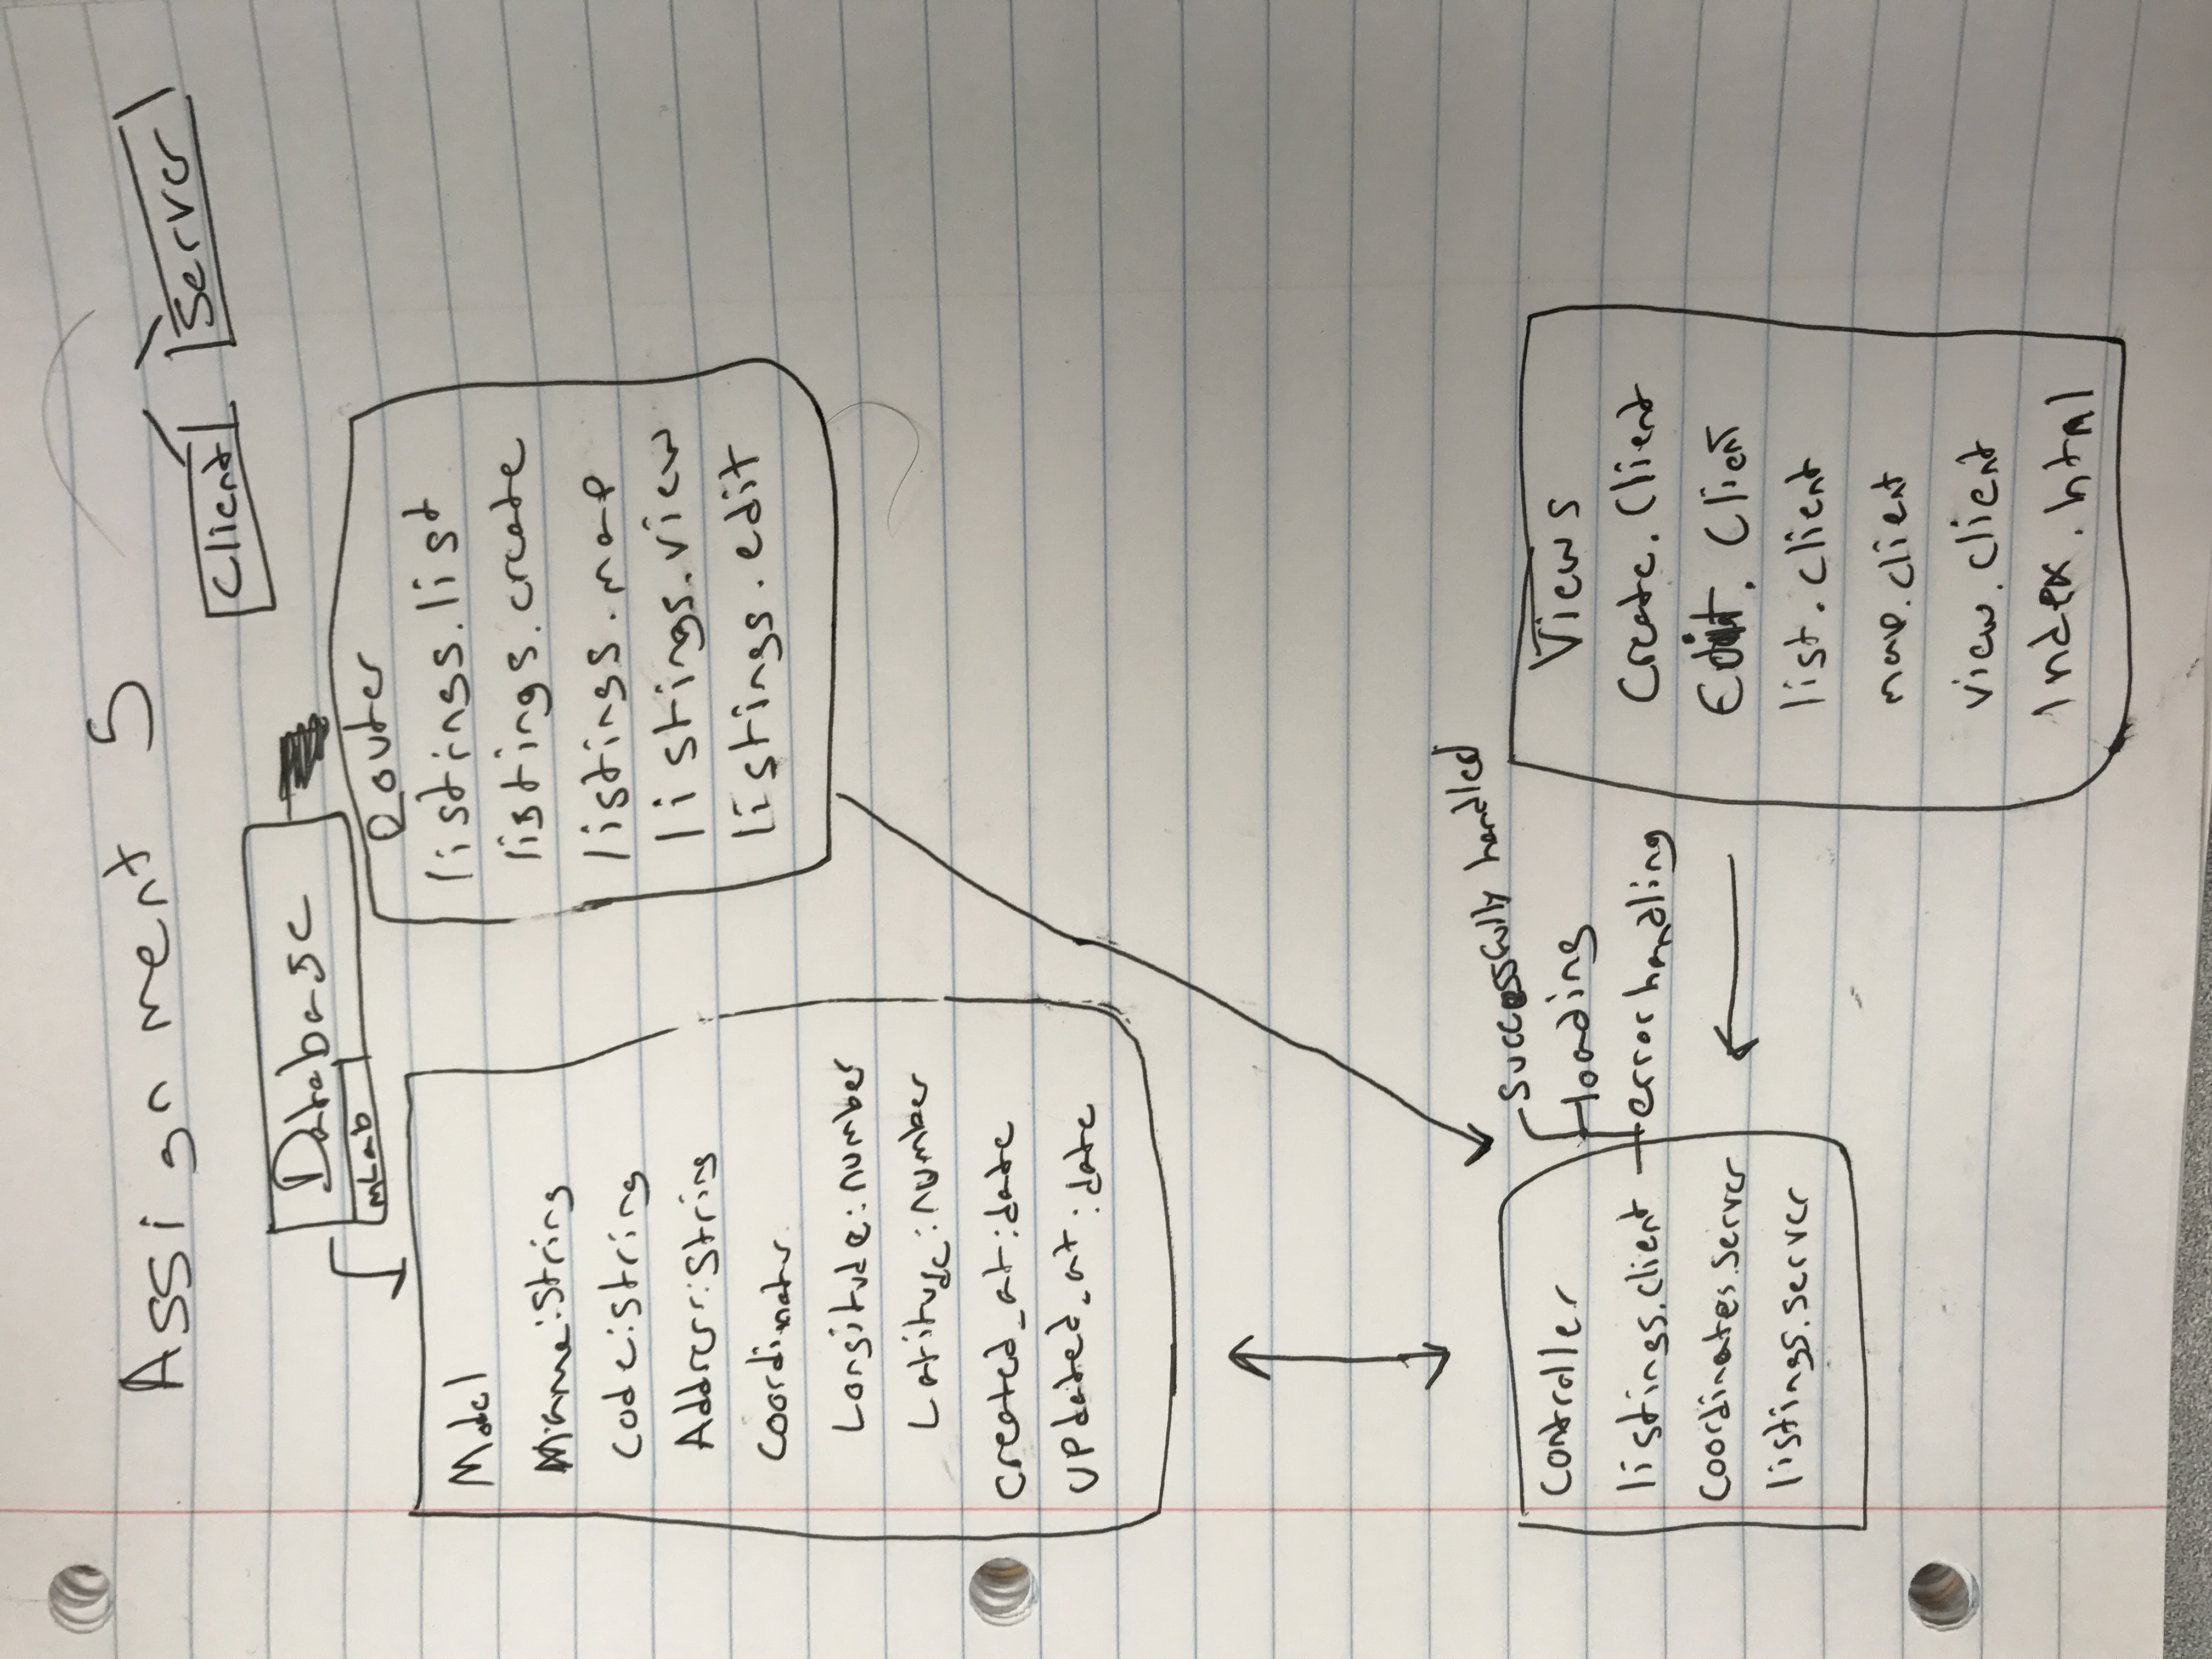 Assignment 5
Client
Server
Database
mLab
Model
Name:String
Code:String
Address:String
Coordinates
Longitude:number
Latitude:number
created_at:date
updated_at:date
Router
listings.list
listings.create
listings.map
listings.view
listings.edit
Controller
listings.client
coordinates.server
listings.server
successfully handled
loading
error handling
Views
Create.Client
Edit.Client
list.client
map.client
view.client
Index.html